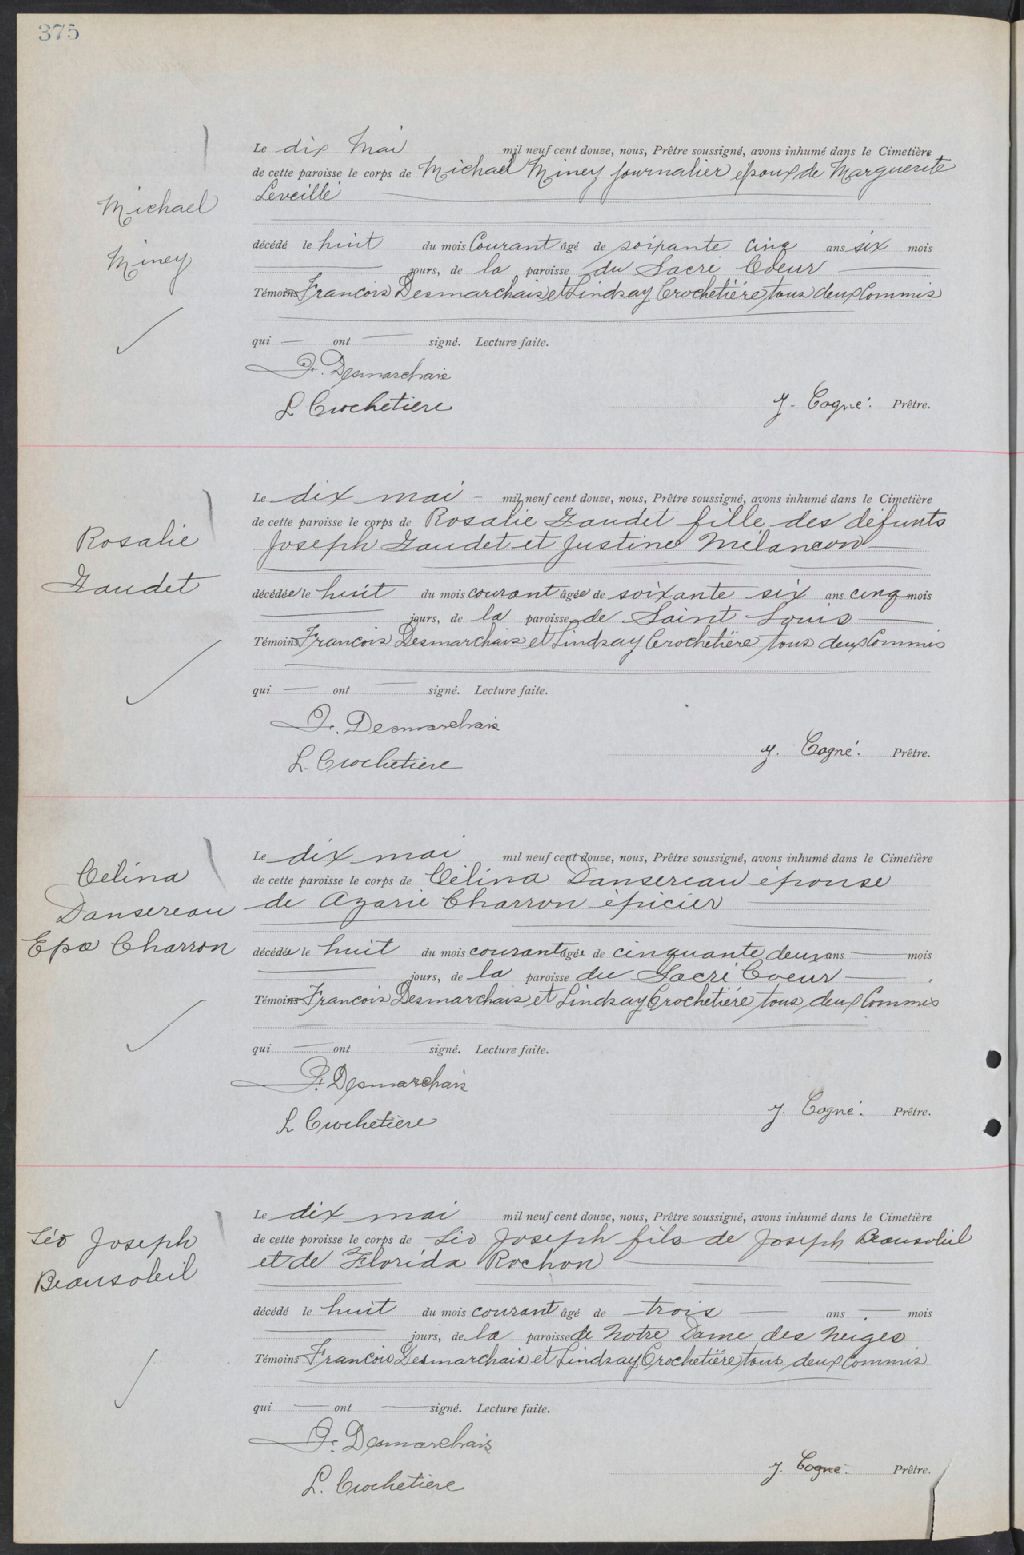 375
Michael
Miney
Le dix Mai mil neuf cent douze, nous, Prêtre soussigné, avons inhumé dans le Cimetière
de cette paroisse le corps de Michael Miney journalier époux de Marguerite
Leveillé
décédé le huit du mois Courant âgé de soixante cinq ans six mois
jours, de la paroisse du Sacré Coeur
Témoins Francois Desmarchais et Lindsay Crochetière tous deux Commis
qui ont signé. Lecture faite.
F. Desmarchais
L Crochetiere
J. Cogné. Prêtre.
Rosalie
Gaudet
Le dix mai mil neuf cent douze, nous, Prêtre soussigné, avons inhumé dans le Cimetière
de cette paroisse le corps de Rosalie Gaudet fille des défunts
Joseph Gaudet et Justine Mélancon
décédée le huit du mois courant âgée de soixante six ans cinq mois
jours, de la paroisse de Saint Louis
Témoins Francois Desmarchais et Lindsay Crochetière tous deux Commis
qui ont signé. Lecture faite.
F. Desmarchais
L. Crochetiere
J. Cogné. Prêtre.
Célina
Dansereau
Epse Charron
Le dix mai mil neuf cent douze, nous, Prêtre soussigné, avons inhumé dans le Cimetière
de cette paroisse le corps de Célina Dansereau épouse
de Azarie Charron épicier
décédée le huit du mois courant âgée de cinquante deux ans mois
jours, de la paroisse du Sacré Coeur
Témoins Francois Desmarchais et Lindsay Crochetiére tous deux Commis
qui ont signé. Lecture faite.
F. Desmarchais
L Crochetiere
J. Cogné. Prêtre.
Léo Joseph
Beausoleil
Le dix mai mil neuf cent douze, nous, Prêtre soussigné, avons inhumé dans le Cimetière
de cette paroisse le corps de Léo Joseph fils de Joseph Beausoleil
et de Florida Rochon
décédé le huit du mois courant âgé de trois ans mois
jours, de la paroisse de Notre Dame des Neiges
Témoins Francois Desmarchais et Lindsay Crochetière tous deux Commis
qui ont signé. Lecture faite.
F. Desmarchais
L. Crochetiere
J. Cogné. Prêtre.